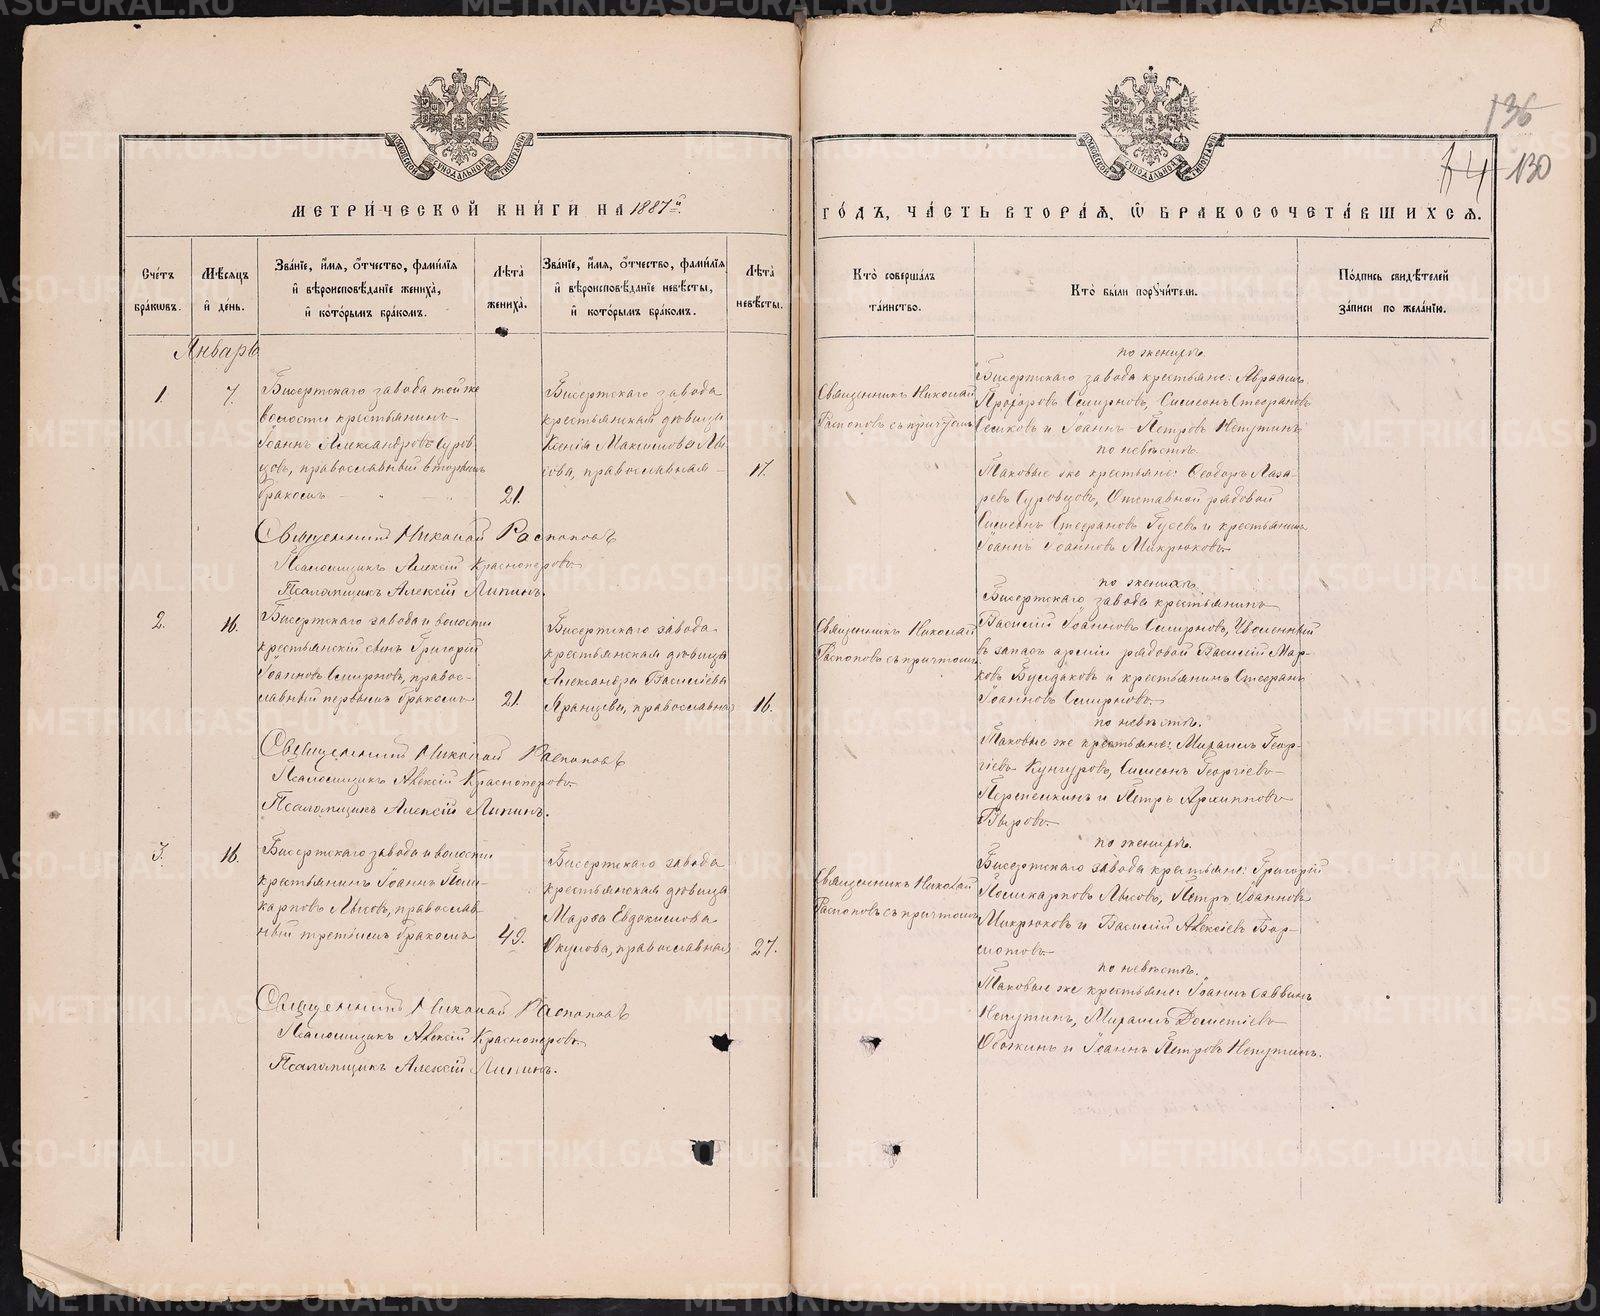 МЕТРИ́ЧЕСКОЙ КНИ́ГИ НА 1887й
ГО́ДЪ, ЧА́СТЬ ВТОРА́Ѧ, Ѽ БРАКОСОЧЕТА́ВШИХСѦ.
136
74 130
Сче́тъ бра́кωвъ.
Мѣ́сѧцъ и҆ де́нь.
Зва́нїе, и҆́мѧ, ѻ҆́тчество, фами́лїѧ и҆ вѣроисповѣ́данїе жениха̀, и҆ кото́рымъ бра́комъ.
Лѣ́та жениха̀.
Зва́нїе, и҆́мѧ, ѻ҆́тчество, фами́лїѧ и҆ вѣроисповѣ́данїе невѣ́сты, и҆ кото́рымъ бра́комъ.
Лѣ́та невѣ́сты.
Кто̀ соверша́лъ та́инство.
Кто̀ бы́ли порꙋчи́тели.
По́дпись свидѣ́телей за́писи по жела́нїю.
Январь
1.
7.
Бисертскаго завода той же
волости крестьянинъ
Іоаннъ Александровъ Суров
цовъ, православный вторымъ
бракомъ
21.
Бисертскаго завода
крестьянская дѣвица
Ксенія Максимова Лы
сова, православная
17.
Священникъ Николай
Распоповъ съ причтомъ
по женихѣ.
Бисертскаго завода крестьяне: Авраамъ
Прохоровъ Смирновъ, Симеонъ Стефановъ
и Іоаннъ Петровъ Непутинъ
по невѣстѣ.
Таковые же крестьяне: Феодоръ Лаза-
ревъ Суровцовъ, Отставной рядовой
Симеонъ Стефановъ Гусевъ и крестьянинъ
Іоаннъ Іоанновъ Микрюковъ.
Священникъ Николай Распоповъ
Псаломщикъ Алексій Красноперовъ
Псаломщикъ Алексій Липинъ.
2.
16.
Бисертскаго завода и волости
крестьянскій сынъ Григорій
Іоанновъ Смирновъ, право-
славный первымъ бракомъ
21.
Бисертскаго завода
крестьянская дѣвица
Александра Васильева
Яранцева, православная
16.
Священникъ Николай
Распоповъ съ причтомъ
по женихѣ.
Бисертскаго завода крестьянинъ
Василій Іоанновъ Смирновъ, Уволенный
въ запасъ арміи рядовой Василій Мар-
ковъ Булдаковъ и крестьянинъ Стефанъ
Іоанновъ Смирновъ.
по невѣстѣ.
Таковые же крестьяне: Михаилъ Геор-
гіевъ Кунгуровъ, Симеонъ Георгіевъ
Перепелкинъ и Петръ Архиповъ
Пыровъ.
Священникъ Николай Распоповъ
Псаломщикъ Алексій Красноперовъ
Псаломщикъ Алексій Липинъ.
3.
16.
Бисертскаго завода и волости
крестьянинъ Іоаннъ Поли-
карповъ Лысовъ, православ
ный третьимъ бракомъ
49.
Бисертскаго завода
крестьянская дѣвица
Марѳа Евдокимова
Окулова, православная
27.
Священникъ Николай
Распоповъ съ причтомъ
по женихѣ.
Бисертскаго завода крестьяне: Григорій
Поликарповъ Лысовъ, Петръ Іоанновъ
Микрюковъ и Василій Алексіевъ Бор-
мотовъ
по невѣстѣ.
Таковые же крестьяне Іоаннъ Саввинъ
Непутинъ, Михаилъ Дометіевъ
Обожинъ и Іоаннъ Петровъ Непутинъ.
Священникъ Николай Распоповъ
Псаломщикъ Алексій Красноперовъ
Псаломщикъ Алексій Липинъ.
METRIKI.GASO-URAL.RU